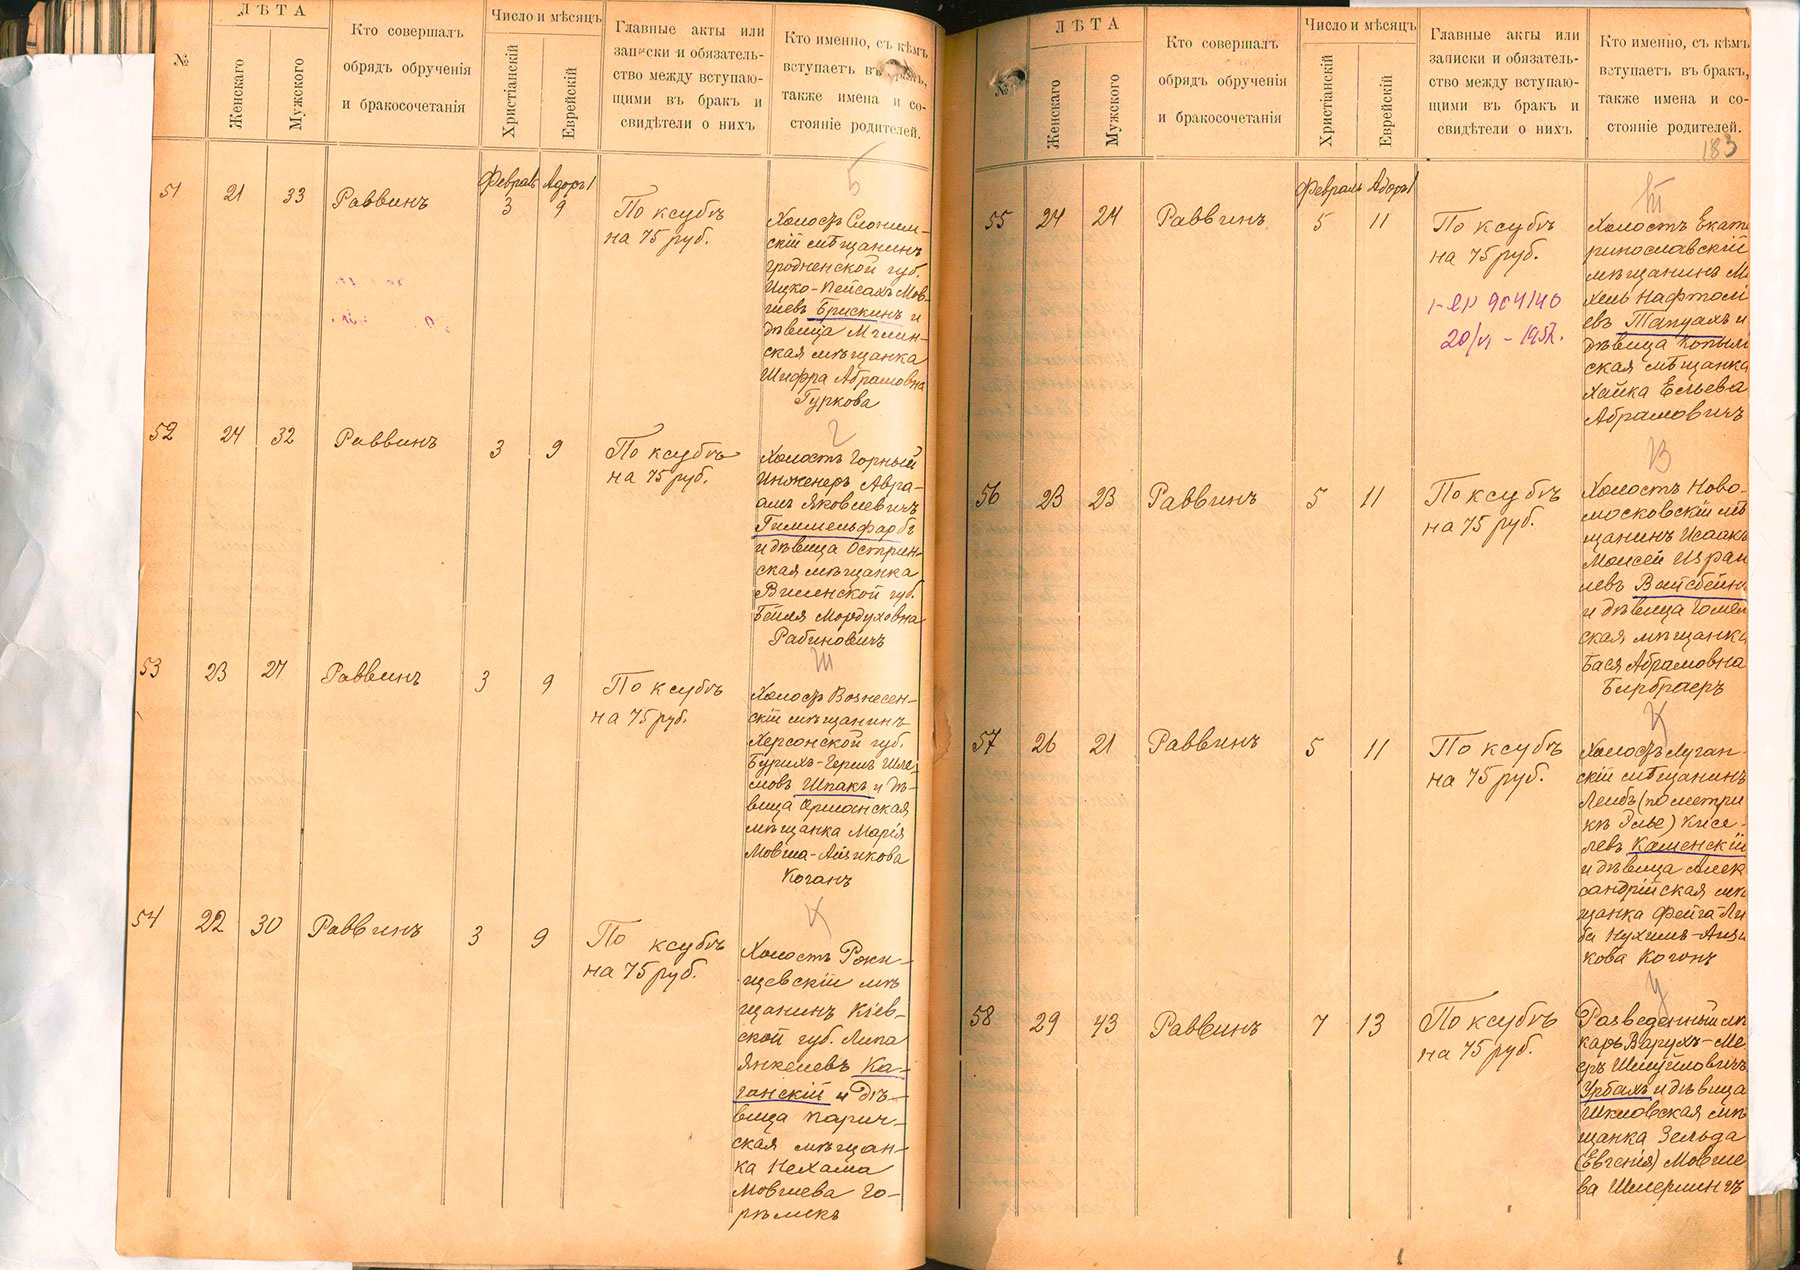 №
ЛѢТА
Женскаго
Мужского
Кто совершалъ
обрядъ обрученія
и бракосочетанія
Число и мѣсяцъ
Христіанскій
Еврейскій
Главные акты или
записки и обязатель-
ство между вступаю-
щими въ бракъ и
свидѣтели о нихъ
Кто именно, съ кѣмъ
вступаетъ въ бракъ,
также имена и со-
стояніе родителей.
51 21 33 Раввинъ
Февраль 3 Адоръ 1 9
По ксубѣ
на 75 руб.
Б
Холостъ Слоним-
скій мѣщанинъ
Гродненской губ.
Ицко-Пейсахъ Мов-
шевъ Брискинъ и
дѣвица Мглин-
ская мѣщанка
Шифра Абрамовна
Гуркова
52 24 32 Раввинъ 3 9
По ксубѣ
на 75 руб.
Г
Холостъ Горный
Инженеръ Авра-
амъ Яковлевичъ
Гиммельфарбъ
и дѣвица Острин-
ская мѣщанка
Виленской губ.
Бейля Мордуховна
Рабиновичъ
53 23 27 Раввинъ 3 9
По ксубѣ
на 75 руб.
Ш
Холостъ Вознесен-
скій мѣщанинъ
Херсонской губ.
Бурихъ-Герш Шле-
мовъ Шпакъ и дѣ-
вица Оршанская
мѣщанка Марія
Мовша-Айзикова
Коганъ
54 22 30 Раввинъ 3 9
По ксубѣ
на 75 руб.
К
Холостъ
мѣ
щанинъ Кіев-
ской губ. Липа
Янкелевъ Ка-
ганскій и дѣ-
вица Парич-
ская мѣщан-
ка Нехама
Мовшева Го-
рѣликъ
№
ЛѢТА
Женскаго
Мужского
Кто совершалъ
обрядъ обрученія
и бракосочетанія
Число и мѣсяцъ
Христіанскій
Еврейскій
Главные акты или
записки и обязатель-
ство между вступаю-
щими въ бракъ и
свидѣтели о нихъ
Кто именно, съ кѣмъ
вступаетъ въ бракъ,
также имена и со-
стояніе родителей.
183
55 24 24 Раввинъ
Февраль 5 Адоръ 1 11
По ксубѣ
на 75 руб.
904140
20/VI - 1952.
Т
Холостъ Екате
ринославскій
мѣщанинъ Ми
хель Нафтолі
евъ Тапуахъ и
дѣвица Копыль
ская мѣщанка
Хайка Ельева
Абрамовичъ
56 23 23 Раввинъ 5 11
По ксубѣ
на 75 руб.
В
Холостъ Ново-
московскій мѣ
щанинъ Исаакъ
Моисей Израи
левъ Вайсбейнъ
и дѣвица Гомель
ская мѣщанка
Бася Абрамовна
Бирбраеръ
57 26 21 Раввинъ 5 11
По ксубѣ
на 75 руб.
К
Холостъ Луган-
скій мѣщанинъ
Лейбъ (по метри
кѣ Элье) Кисе-
левъ Каменскій
и дѣвица Алек
сандрійская мѣ
щанка Фейга-Ли
ба Нухимъ-Айзи
кова Коганъ
58 29 43 Раввинъ 7 13
По ксубѣ
на 75 руб.
У
Разведенный лѣ
карь Барухъ-Ме-
еръ Шмуйловичъ
Урбахъ и дѣвица
Шкловская мѣ
щанка Зельда
(Евгенія) Мовше
ва Шмершингъ